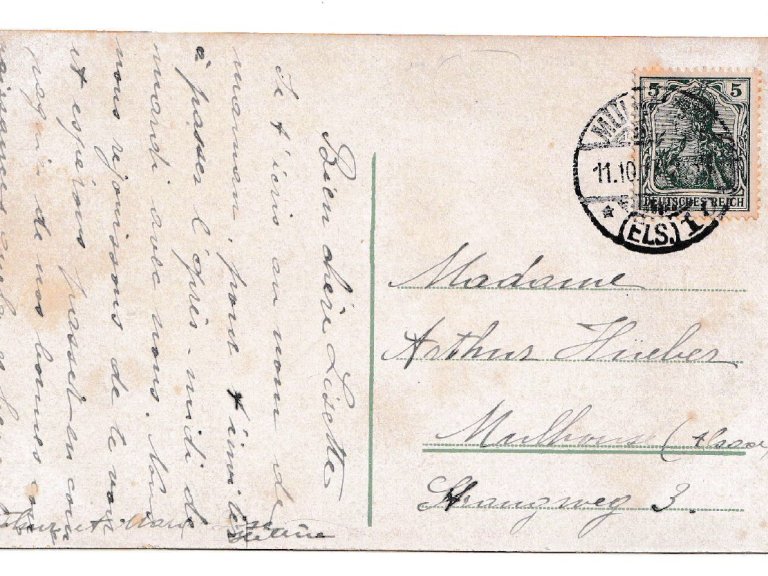 Bien chère Lisette
Je t'écris au nom de
maman, pour t'inviter
à passer l'après-midi de
mardi avec nous. Nous
nous réjouissons de te voir
et espérons passer en com
de nos bonnes
5 5
DEUTSCHES REICH
MÜL
11.10.
(ELS.) 1
Madame
Arthur Hueber
Mulhouse (Alsace
Strangweg 3.